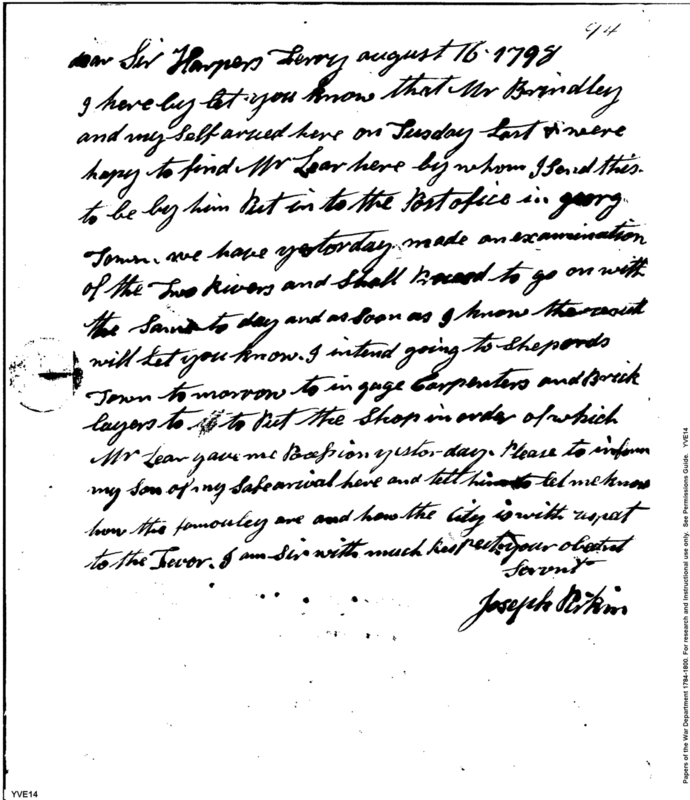 94
dear Sir Harpers Ferry august 16 1798
I here by let you know that Mr Brindley
and my Self arued here on Tusday Last & were
hapy to find Mr Lear here by whom I Send this
to be by him Put in to the Post ofice in georg
Town. we have yestorday made an examination
of the Two Rivers and Shall to go on with
the Same to day and as Soon as I know the result
will Let you know. I intend going to Sheperds
Town to morrow to in gage Carpenters and Brick
layers to to Put the Shop in order of which
Mr Lear gave me Posession yestor day. Please to inform
my Son of my Safe arival here and tell him to let me know
how the famouley are and how the City is with respect
to the Fevor. I am Sir with much Respect your obedint
Servnt
Joseph Perkin
YVE14
Papers of the War Department 1784-1800. For research and Instructional use only. See Permissions Guide. YVE14